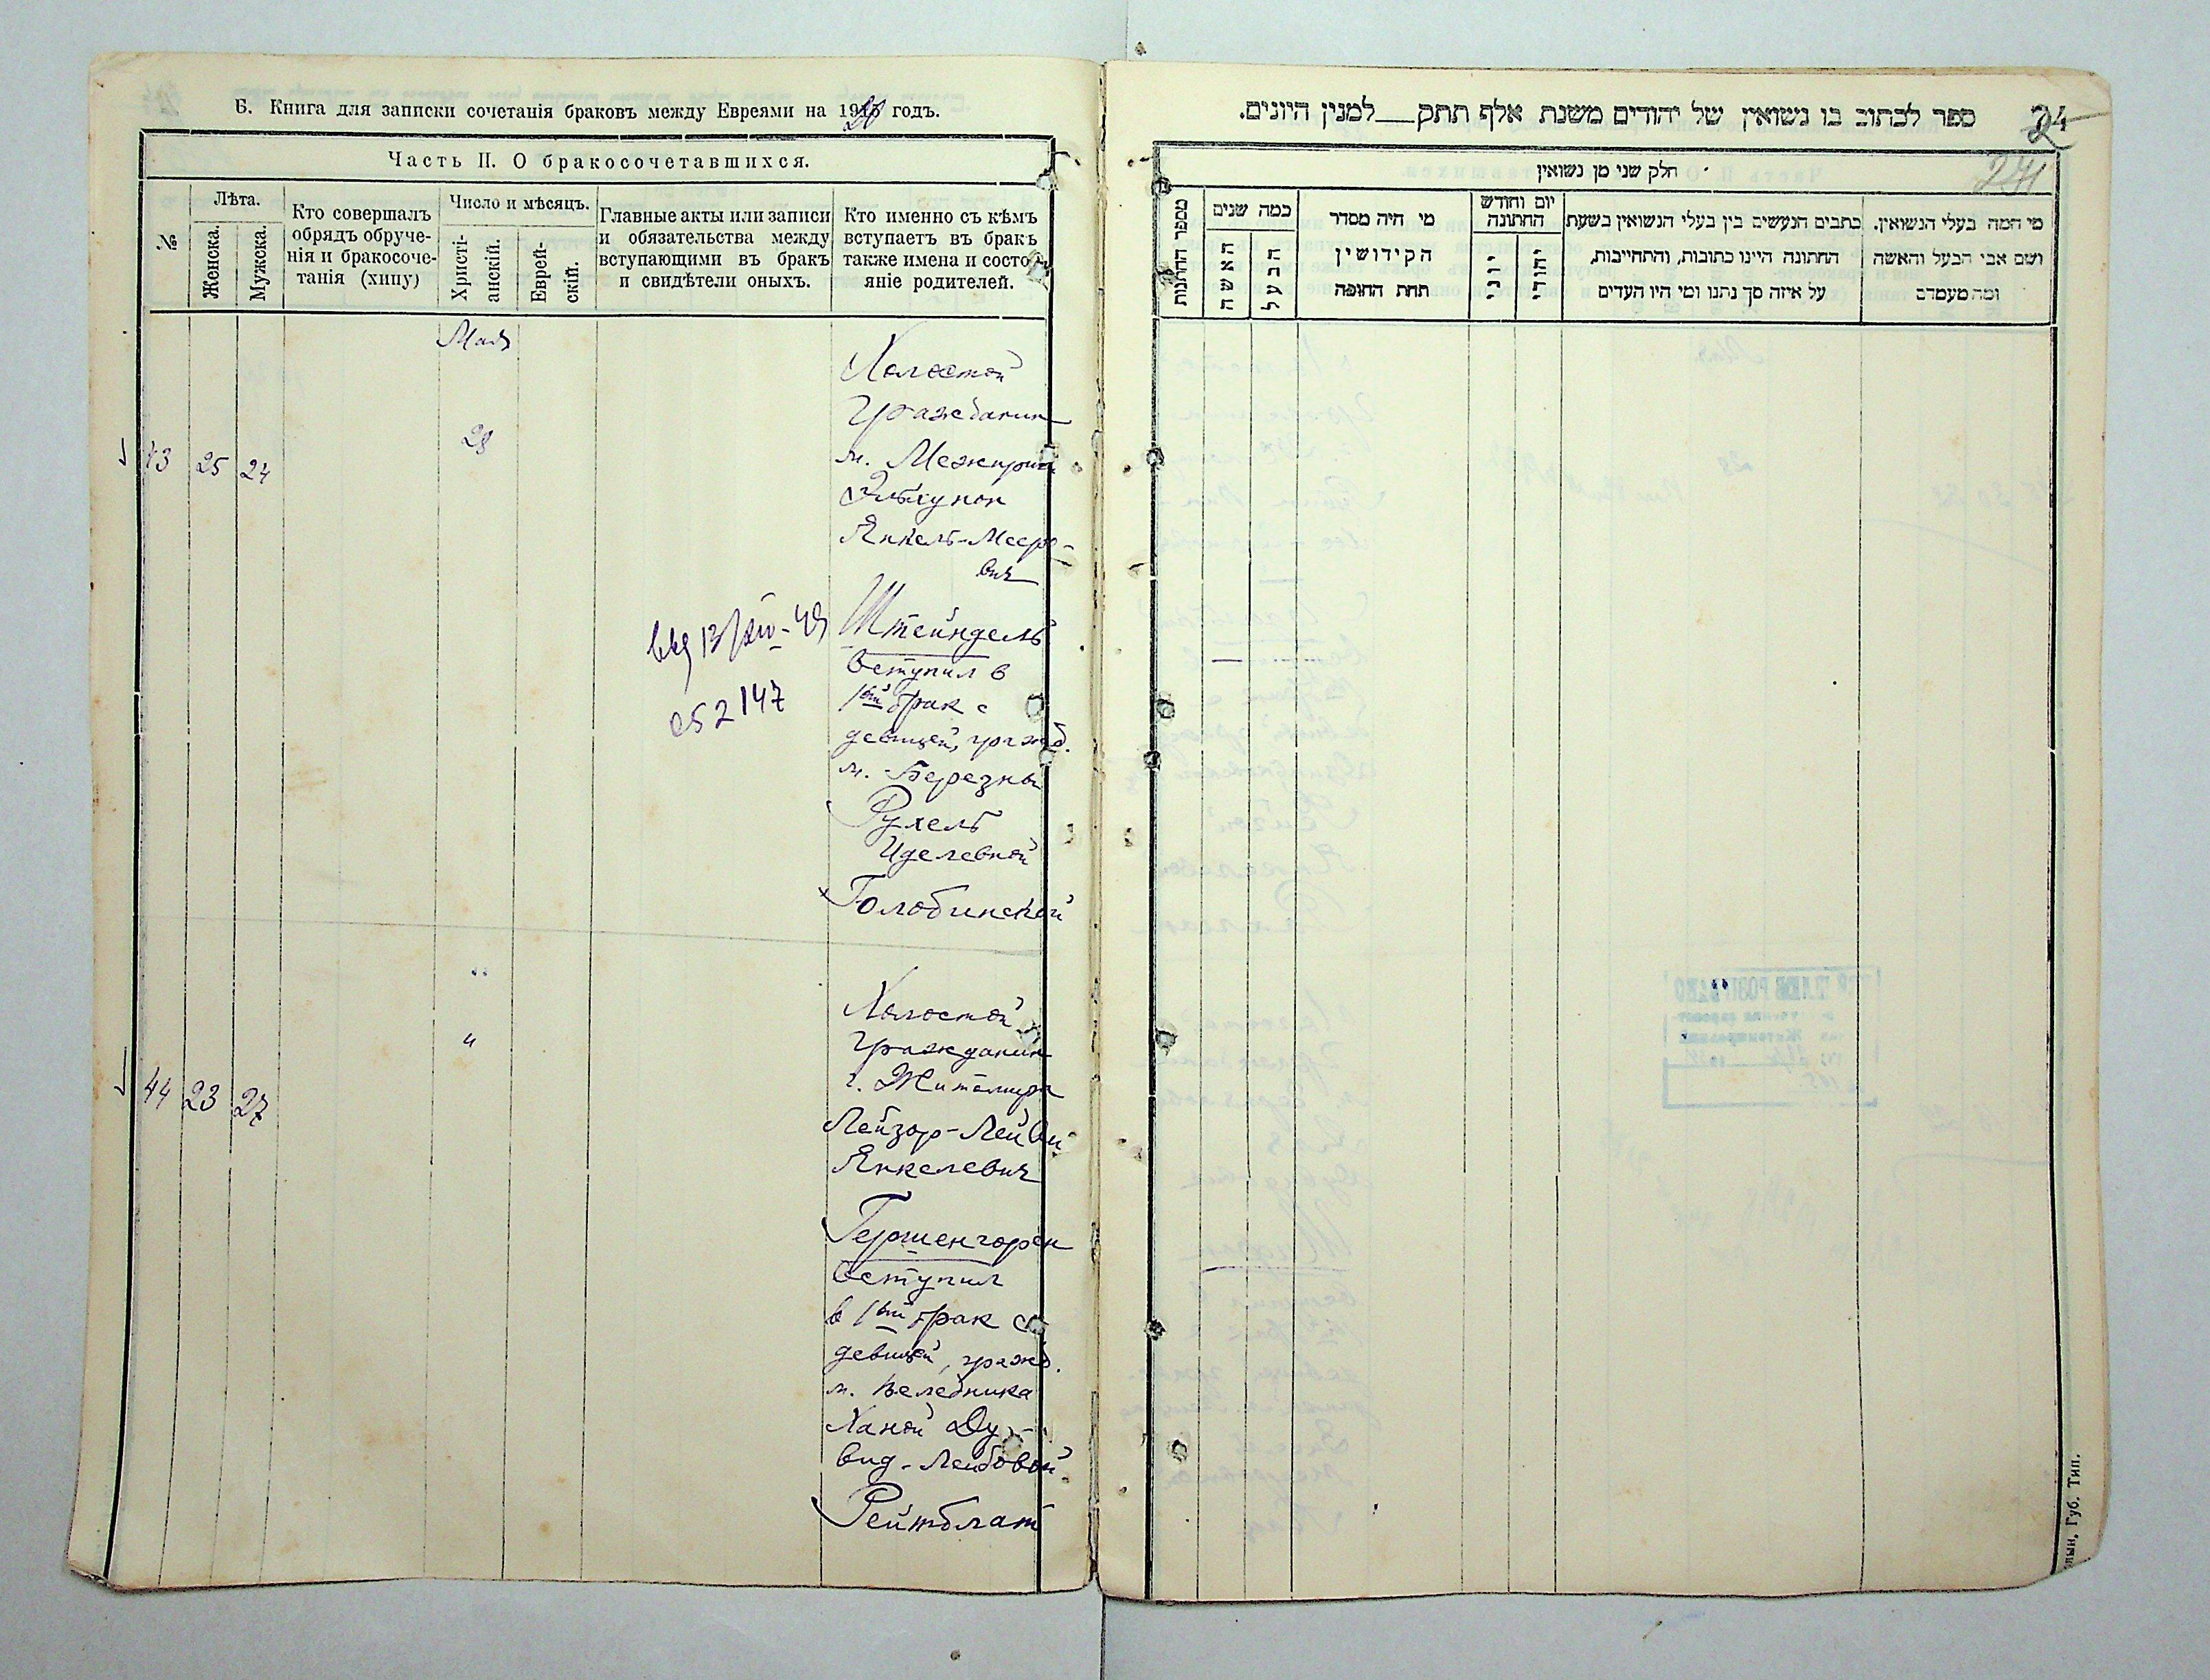 Б. Книга для записки сочетанія браковъ между Евреями на 1920 годъ.
Часть II. О бракосочетавшихся.
№
Лѣта.
Женска.
Мужска.
Кто совершалъ
обрядъ обруче-
нія и бракосоче-
танія (хипу)
Число и мѣсяцъ.
Христі-
анскій.
Еврей-
скій.
Главные акты или записи
и обязательства между
вступающими въ бракъ
и свидѣтели оныхъ.
Кто именно съ кѣмъ
вступаетъ въ бракъ
также имена и состо-
яніе родителей.
Май
43 25 24
28
Холостой
Гражданин
м. Межирич
Эльхунон
Янкель-Мееро-
вич
Штейндель
вступил в
1ый брак с
девицей, гражд.
м. Березны
Рухель
Иделевной
Голобинской
147
"
"
44 23 27
Холостой
Гражданин
г. Житомира
Лейзор-Лейви
Янкелевич
Гершенгорен
вступил
в 1ый брак с
девицей, гражд.
м. Веледника
Ханой Ду-
вид-Лейбовой
Рейтблат
ספר לכתוב בו נשואין של יהודים משנת אלף תתק__למנין היונים.
24
241
חלק שני מן נשואין
מספר החתנות
כמה שנים
האשה
הבעל
מי היה מסדר
הקידושין
תחת החופה
יום וחודש
החתונה
יוני
יהודי
כתבים הנעשים בין בעלי הנשואין בשעת
החתונה היינו כתובות, והתחייבות,
על איזה סך נתנו ומי היו העדים
מי המה בעלי הנשואין.
ושם אבי הבעל והאשה
ומה מעמדם
лын. Губ. Тип.